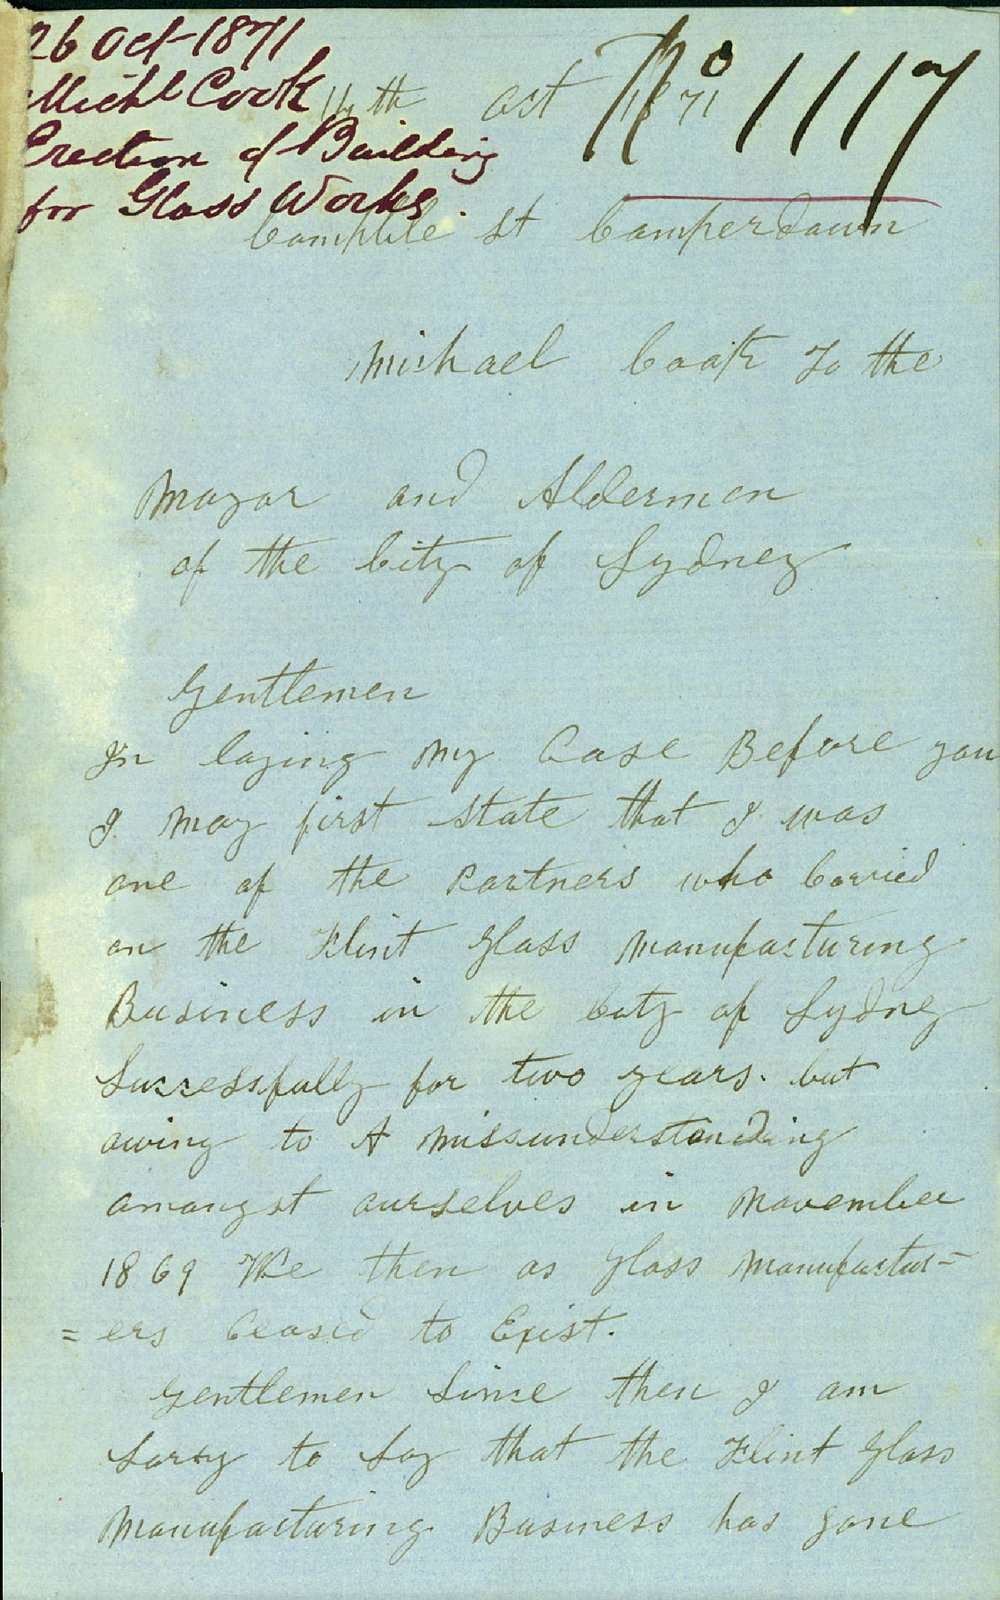 26 Oct-1871
Michl Cook
Erection of Building
for Glass Works
No 1117
14th oct 1871
St Camperdown
Michael Cook To the
Mayor and Aldermen
of the City of Sydney
Gentlemen
In laying My Case Before you
I May first State that I was
one of the Partners who Carried
on the Flint Glass Manufacturing
Business in the City of Sydney
Successfully for two years. but
owing to A Missunderstanding
amongst ourselves in November
1869 We then as Glass Manufactur-
=ers Ceased to Exist.
Gentlemen Since then I am
Sorry to Say that the Flint Glass
Manufacturing Business has gone